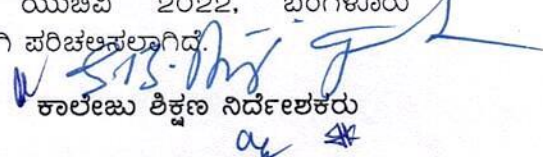 ಯುಜಿವಿ 2022, ಬೆಂಗಳೂರು
ಪರಿಚಲಿಸಲಾಗಿದೆ.
ಕಾಲೇಜು ಶಿಕ್ಷಣ ನಿರ್ದೇಶಕರು